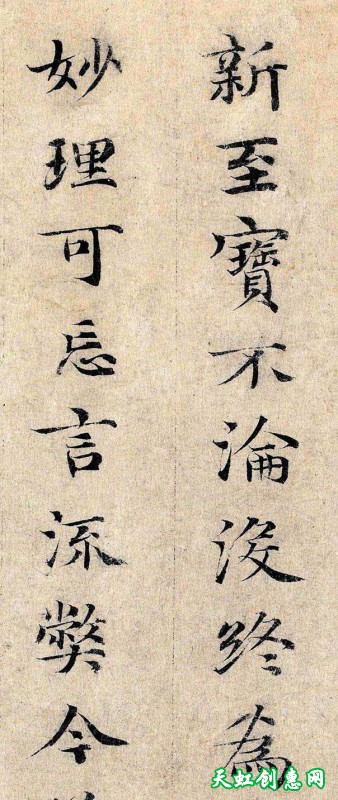 新至寶不淪没終為
妙理可忘言流弊今
天虹创意网